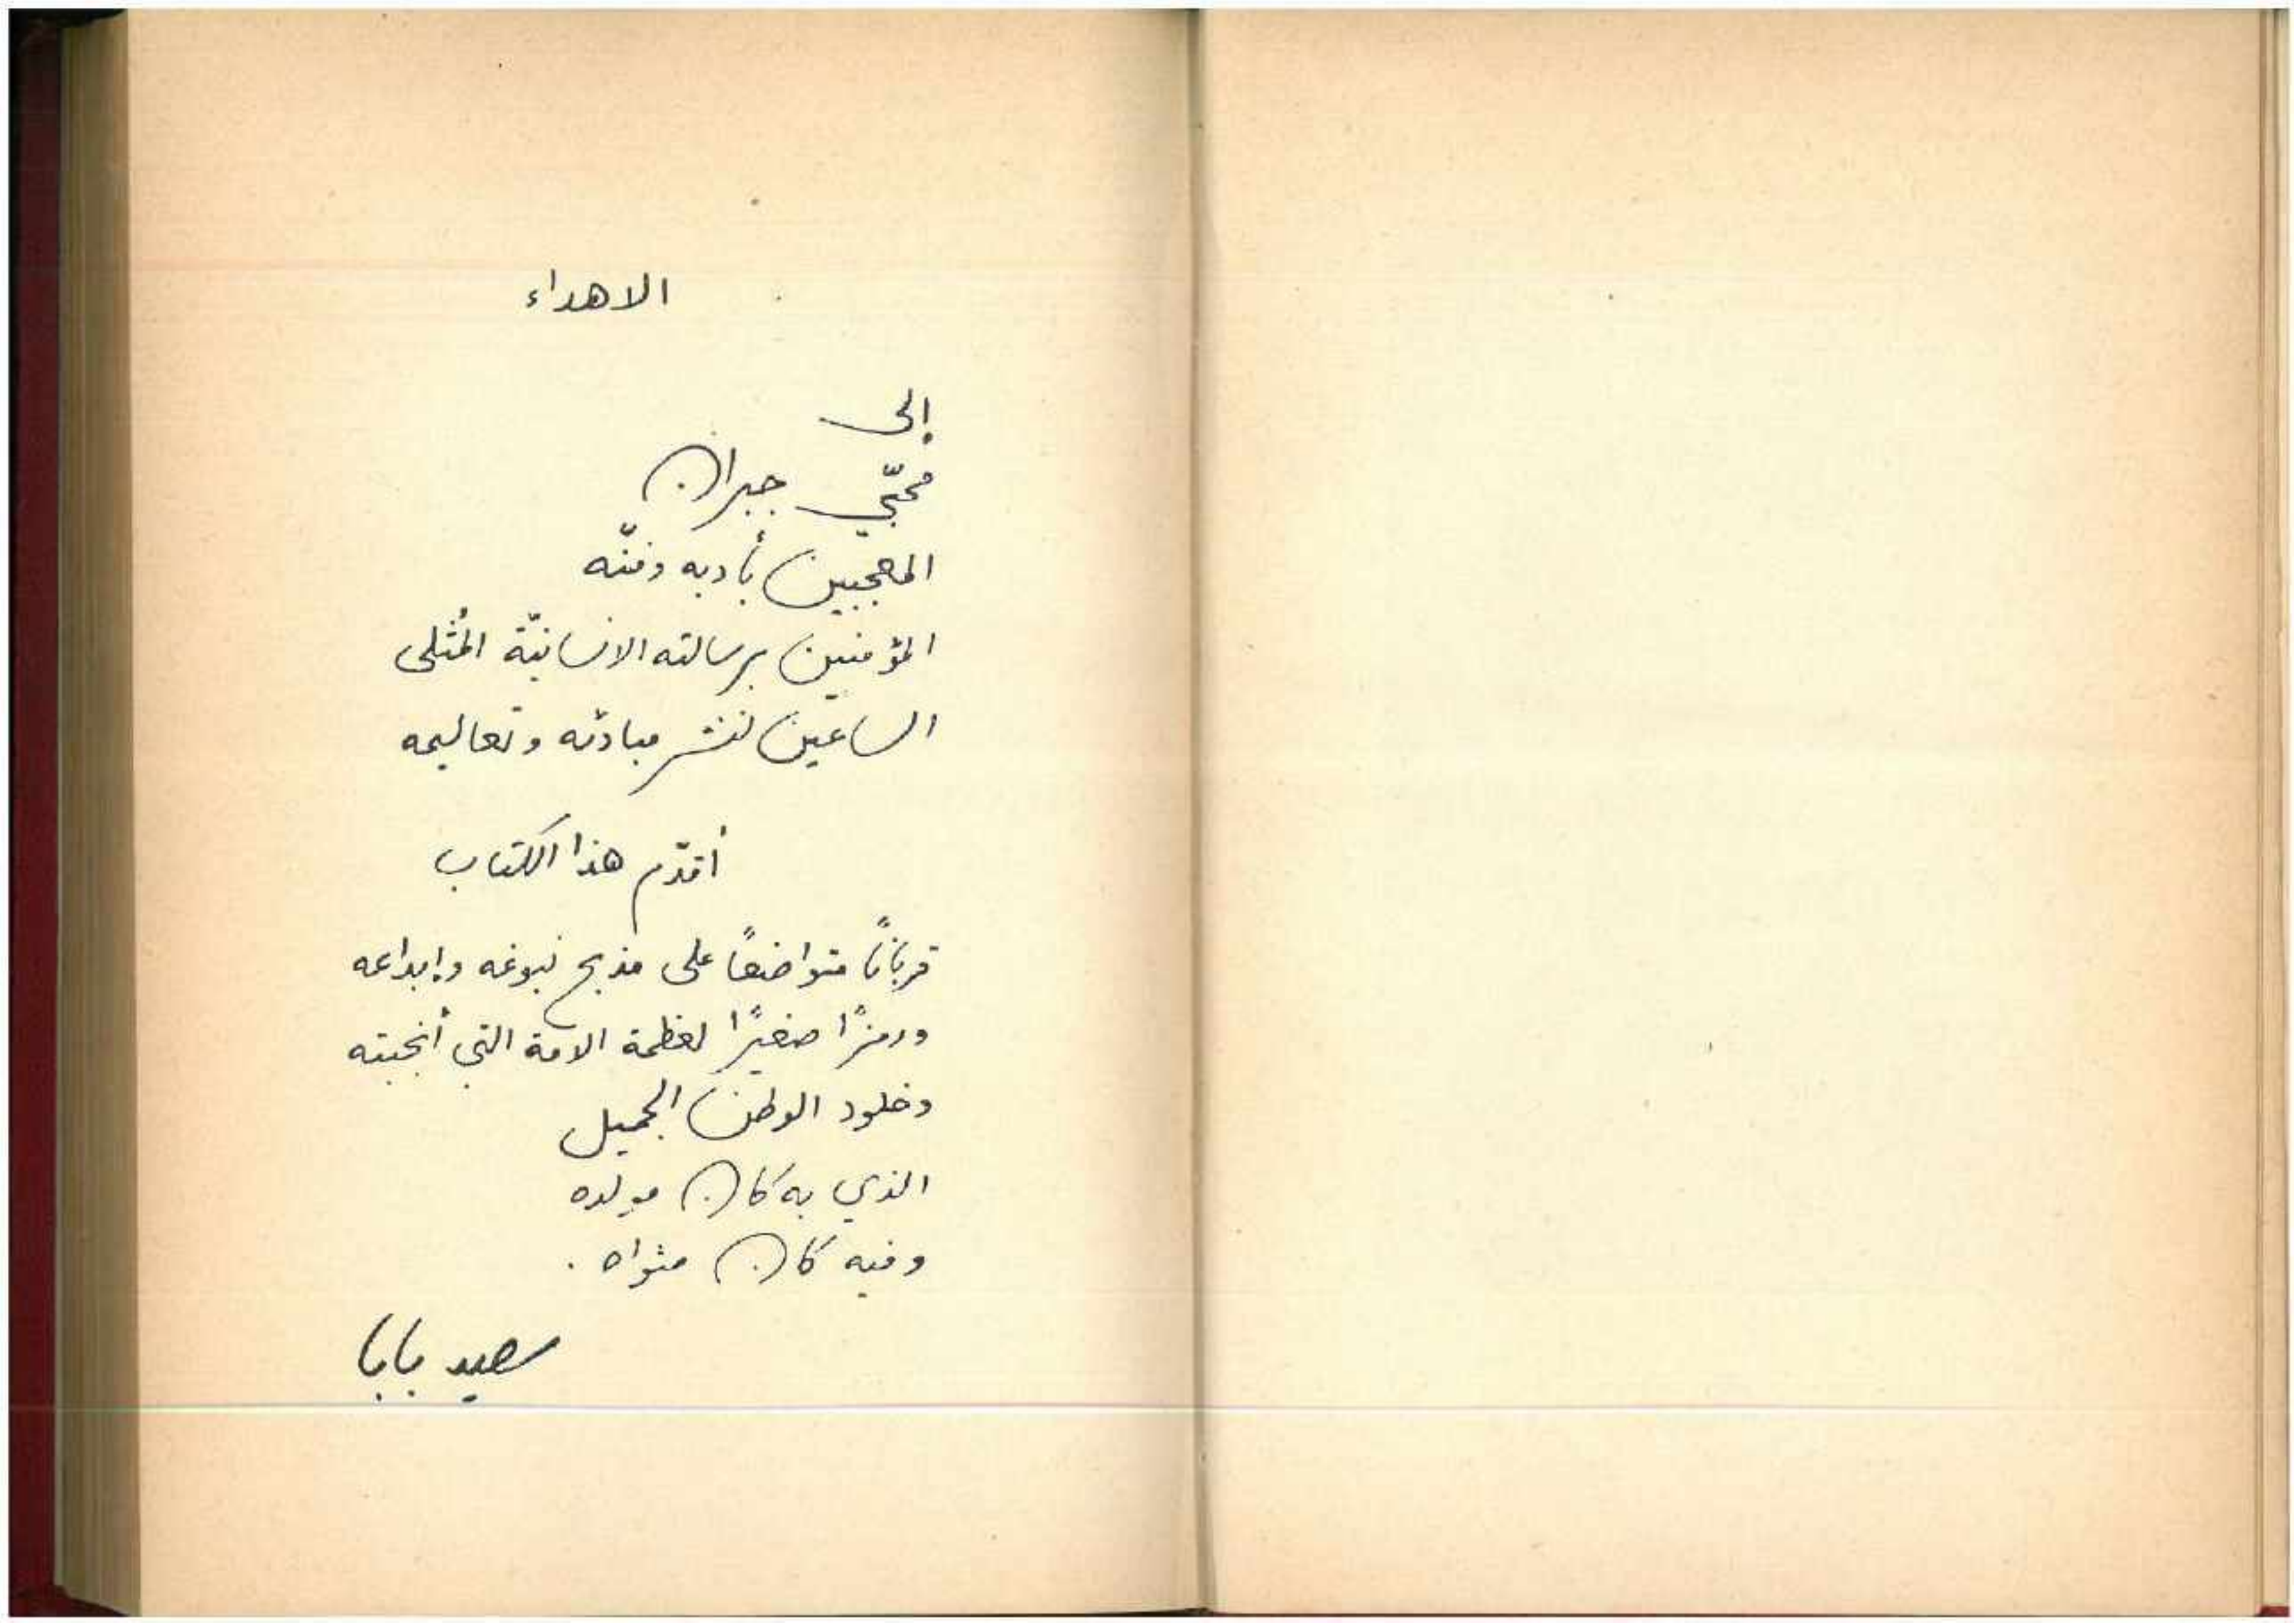 الاهداء
إلى
محبّي جبران
المعجبين بأدبه وفنّه
المؤمنين برسالته الانسانيّة المُثلى
الساعين لنشر مبادئه وتعاليمه
أقدّم هذا الكتاب
قرباناً متواضعاً على مذبح نبوغه وإبداعه
ورمزًا صغيرًا لعظمة الامة التي أنجبته
وخلود الوطن الجميل
الذي به كان مولده
وفيه كان مثواه .
سعيد بابا